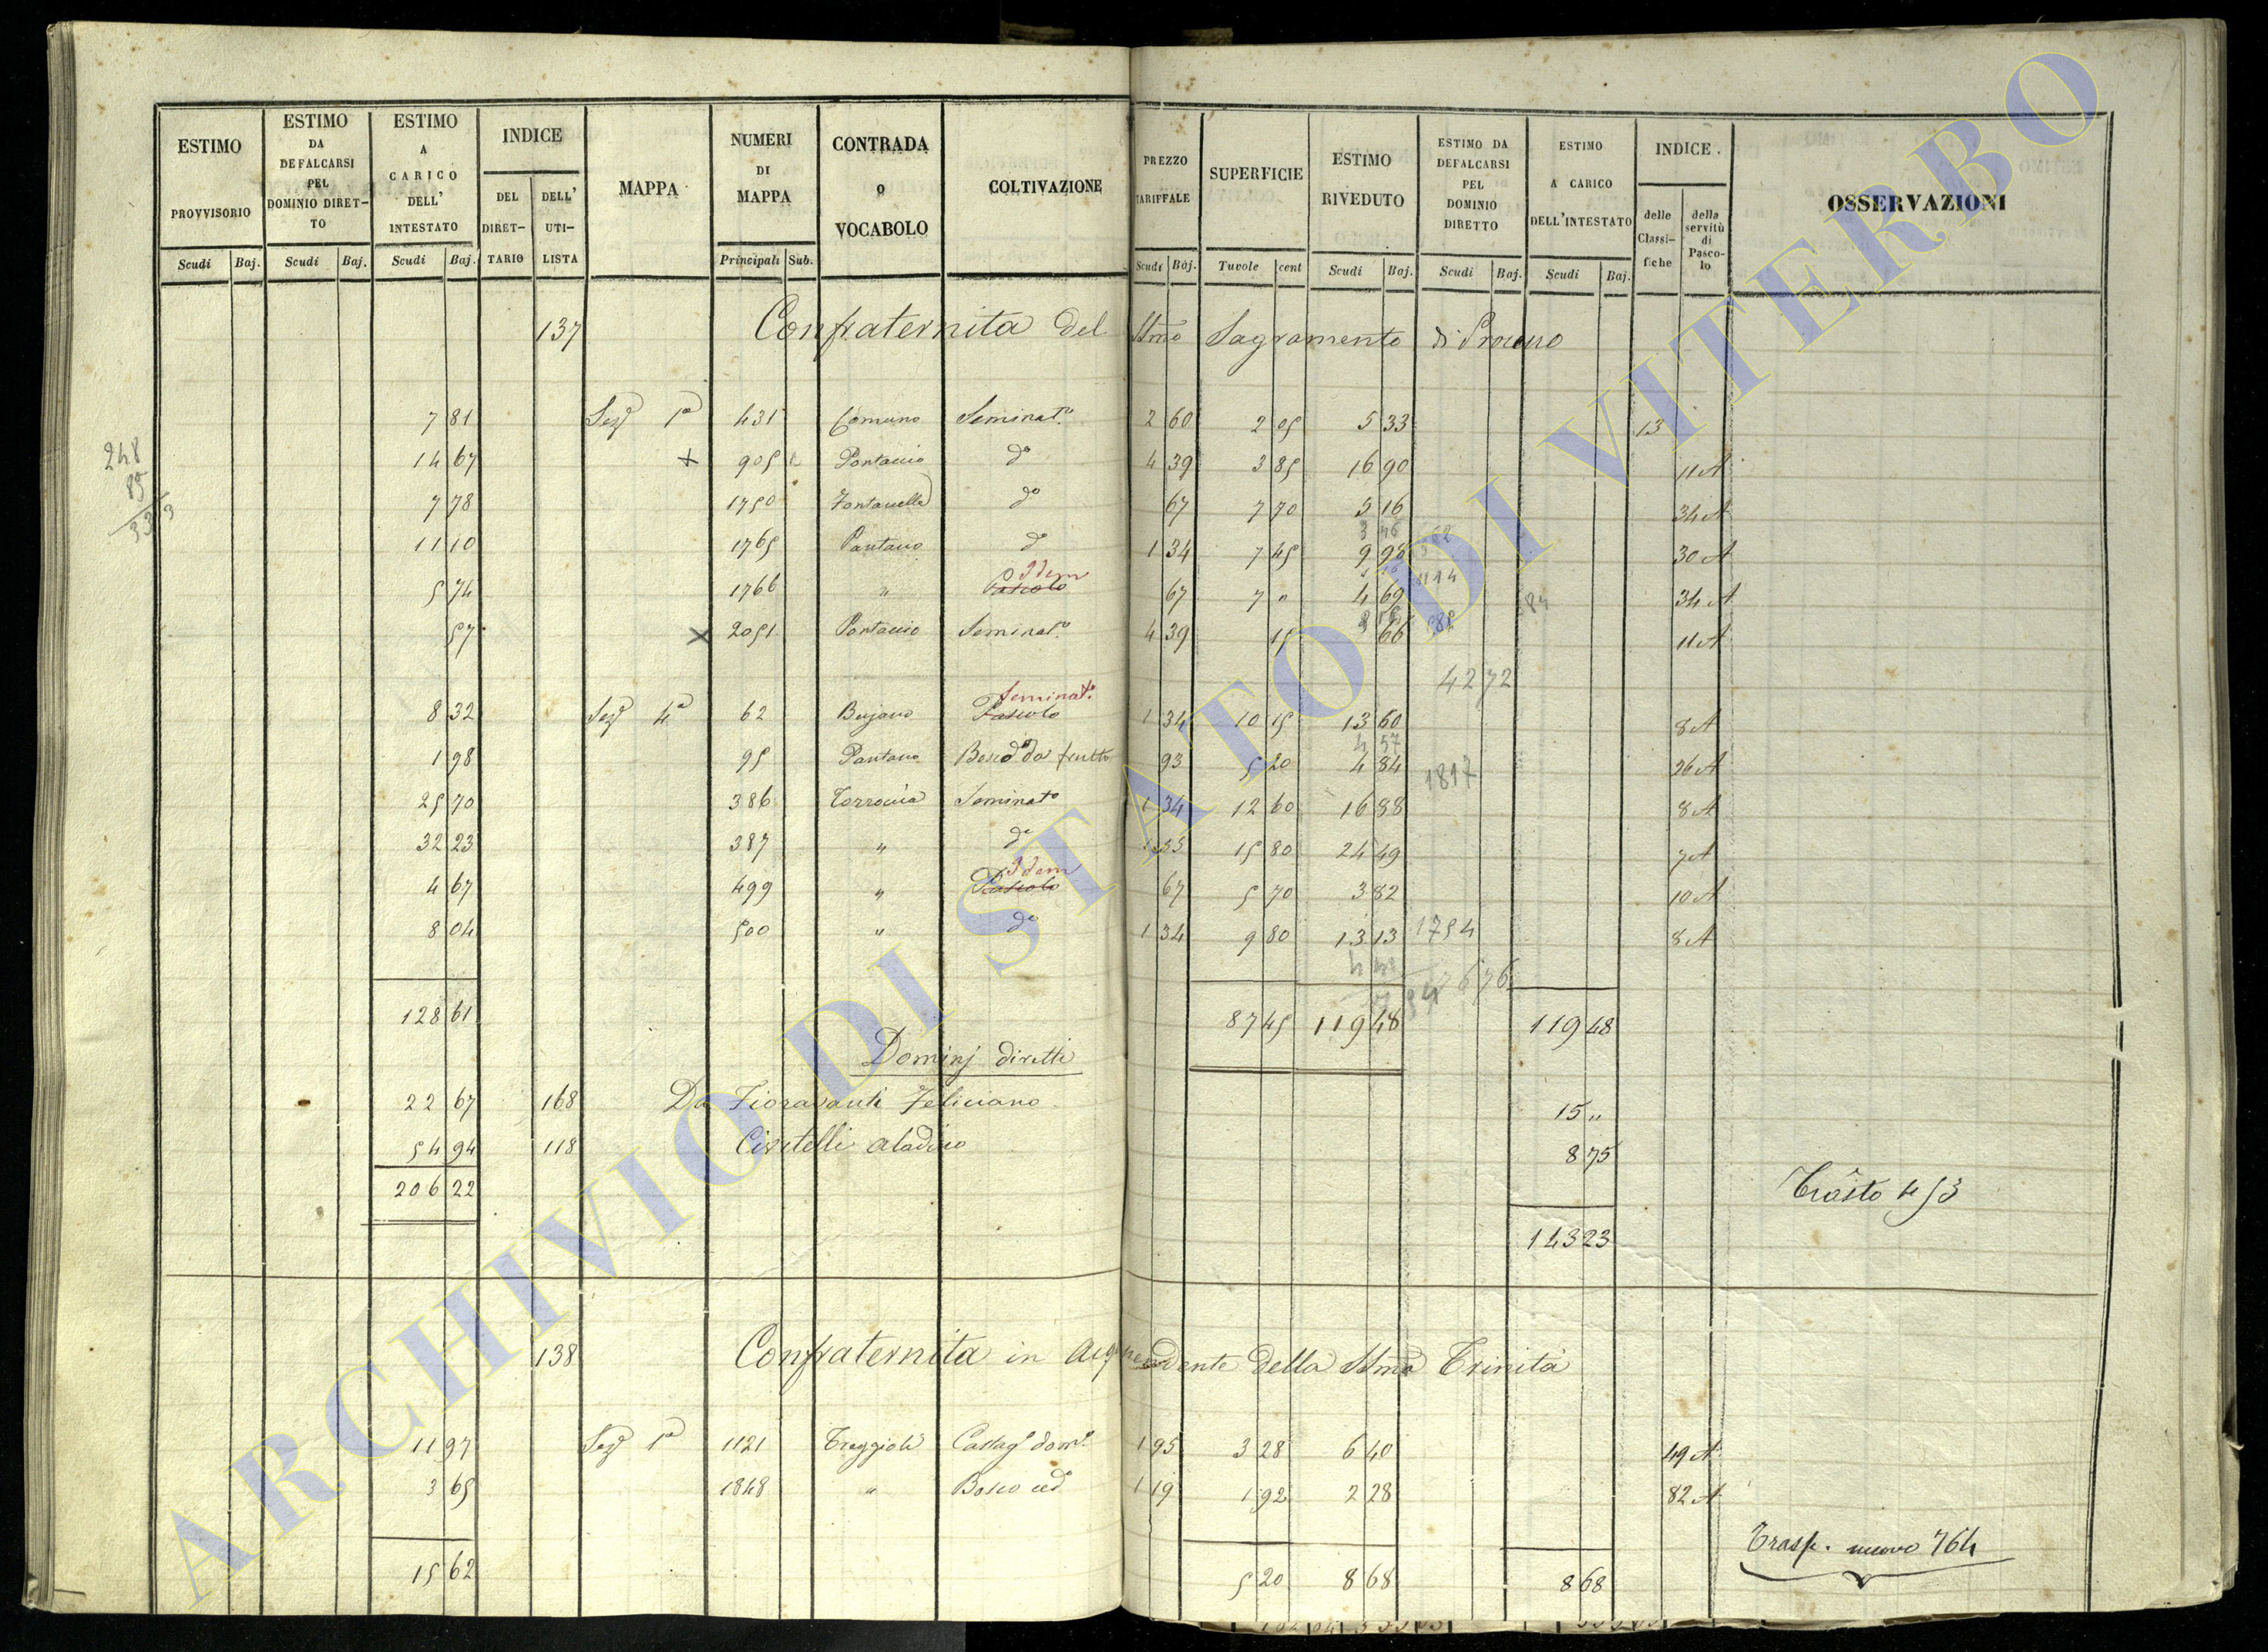 ESTIMO PROVVISORIO | ESTIMO DA DEFALCARSI PEL DOMINIO DIRETTO | ESTIMO A CARICO DELL' INTESTATO | INDICE DEL DIRETTARIO | DELL' UTILISTA | MAPPA | NUMERI DI MAPPA | CONTRADA O VOCABOLO | COLTIVAZIONE | PREZZO TARIFFALE | SUPERFICIE | ESTIMO RIVEDUTO | ESTIMO DA DEFALCARSI PEL DOMINIO DIRETTO | ESTIMO A CARICO DELL'INTESTATO | INDICE. delle Classifiche | della servitù di Pascolo | OSSERVAZIONI
Scudi Baj. Scudi Baj. Scudi Baj. Principali Sub. Scudi Baj. Tavole cent Scudi Baj. Scudi Baj. Scudi Baj.
137 Confraternita del SSmo Sagramento di Proceno
7 81 Seze 1a 431 Comuno Seminato 2 60 2 05 5 33 13
248 14 67 x 905 Pontaccio do 4 39 3 85 16 90 11 A
85 7 78 1750 Fontanella do 67 7 70 5 16 34 A
333 11 10 1765 Pantano do 1 34 7 45 9 98 30 A
5 74 1766 " Pascolo Idem 67 7 " 4 69 34 A
57 x 2051 Pontaccio Seminato 4 39 15 66 11 A
42 72
8 32 Seze 4a 62 Bujano Pascolo Seminato 1 34 10 15 13 60 8 A
1 98 95 Pantano Bosco do da frutto 93 5 20 4 84 26 A
4 57
1817
25 70 386 Torroncia Seminato 1 34 12 60 16 88 8 A
32 23 387 " do 1 55 15 80 24 49 7 A
4 67 499 " Pascolo Idem 67 5 70 3 82 10 A
8 04 500 " do 1 34 9 80 13 13 1754 8 A
76 76
128 61 87 45 119 48 119 48
Dominj diretti
22 67 168 Da Fioravanti Feliciano 15 "
54 94 118 Civitelli Aladino 8 75
206 22 Trasto 453
143 23
138 Confraternita in Acquapendente della SSma Trinità
11 97 Seze 1a 1121 Treggiole Castago dome 1 95 3 28 6 40 49 A
3 65 1848 " Bosco ced 1 19 1 92 2 28 82 A
Trasp. nuovo 764
15 62 5 20 8 68 8 68
ARCHIVIO DI STATO DI VITERBO